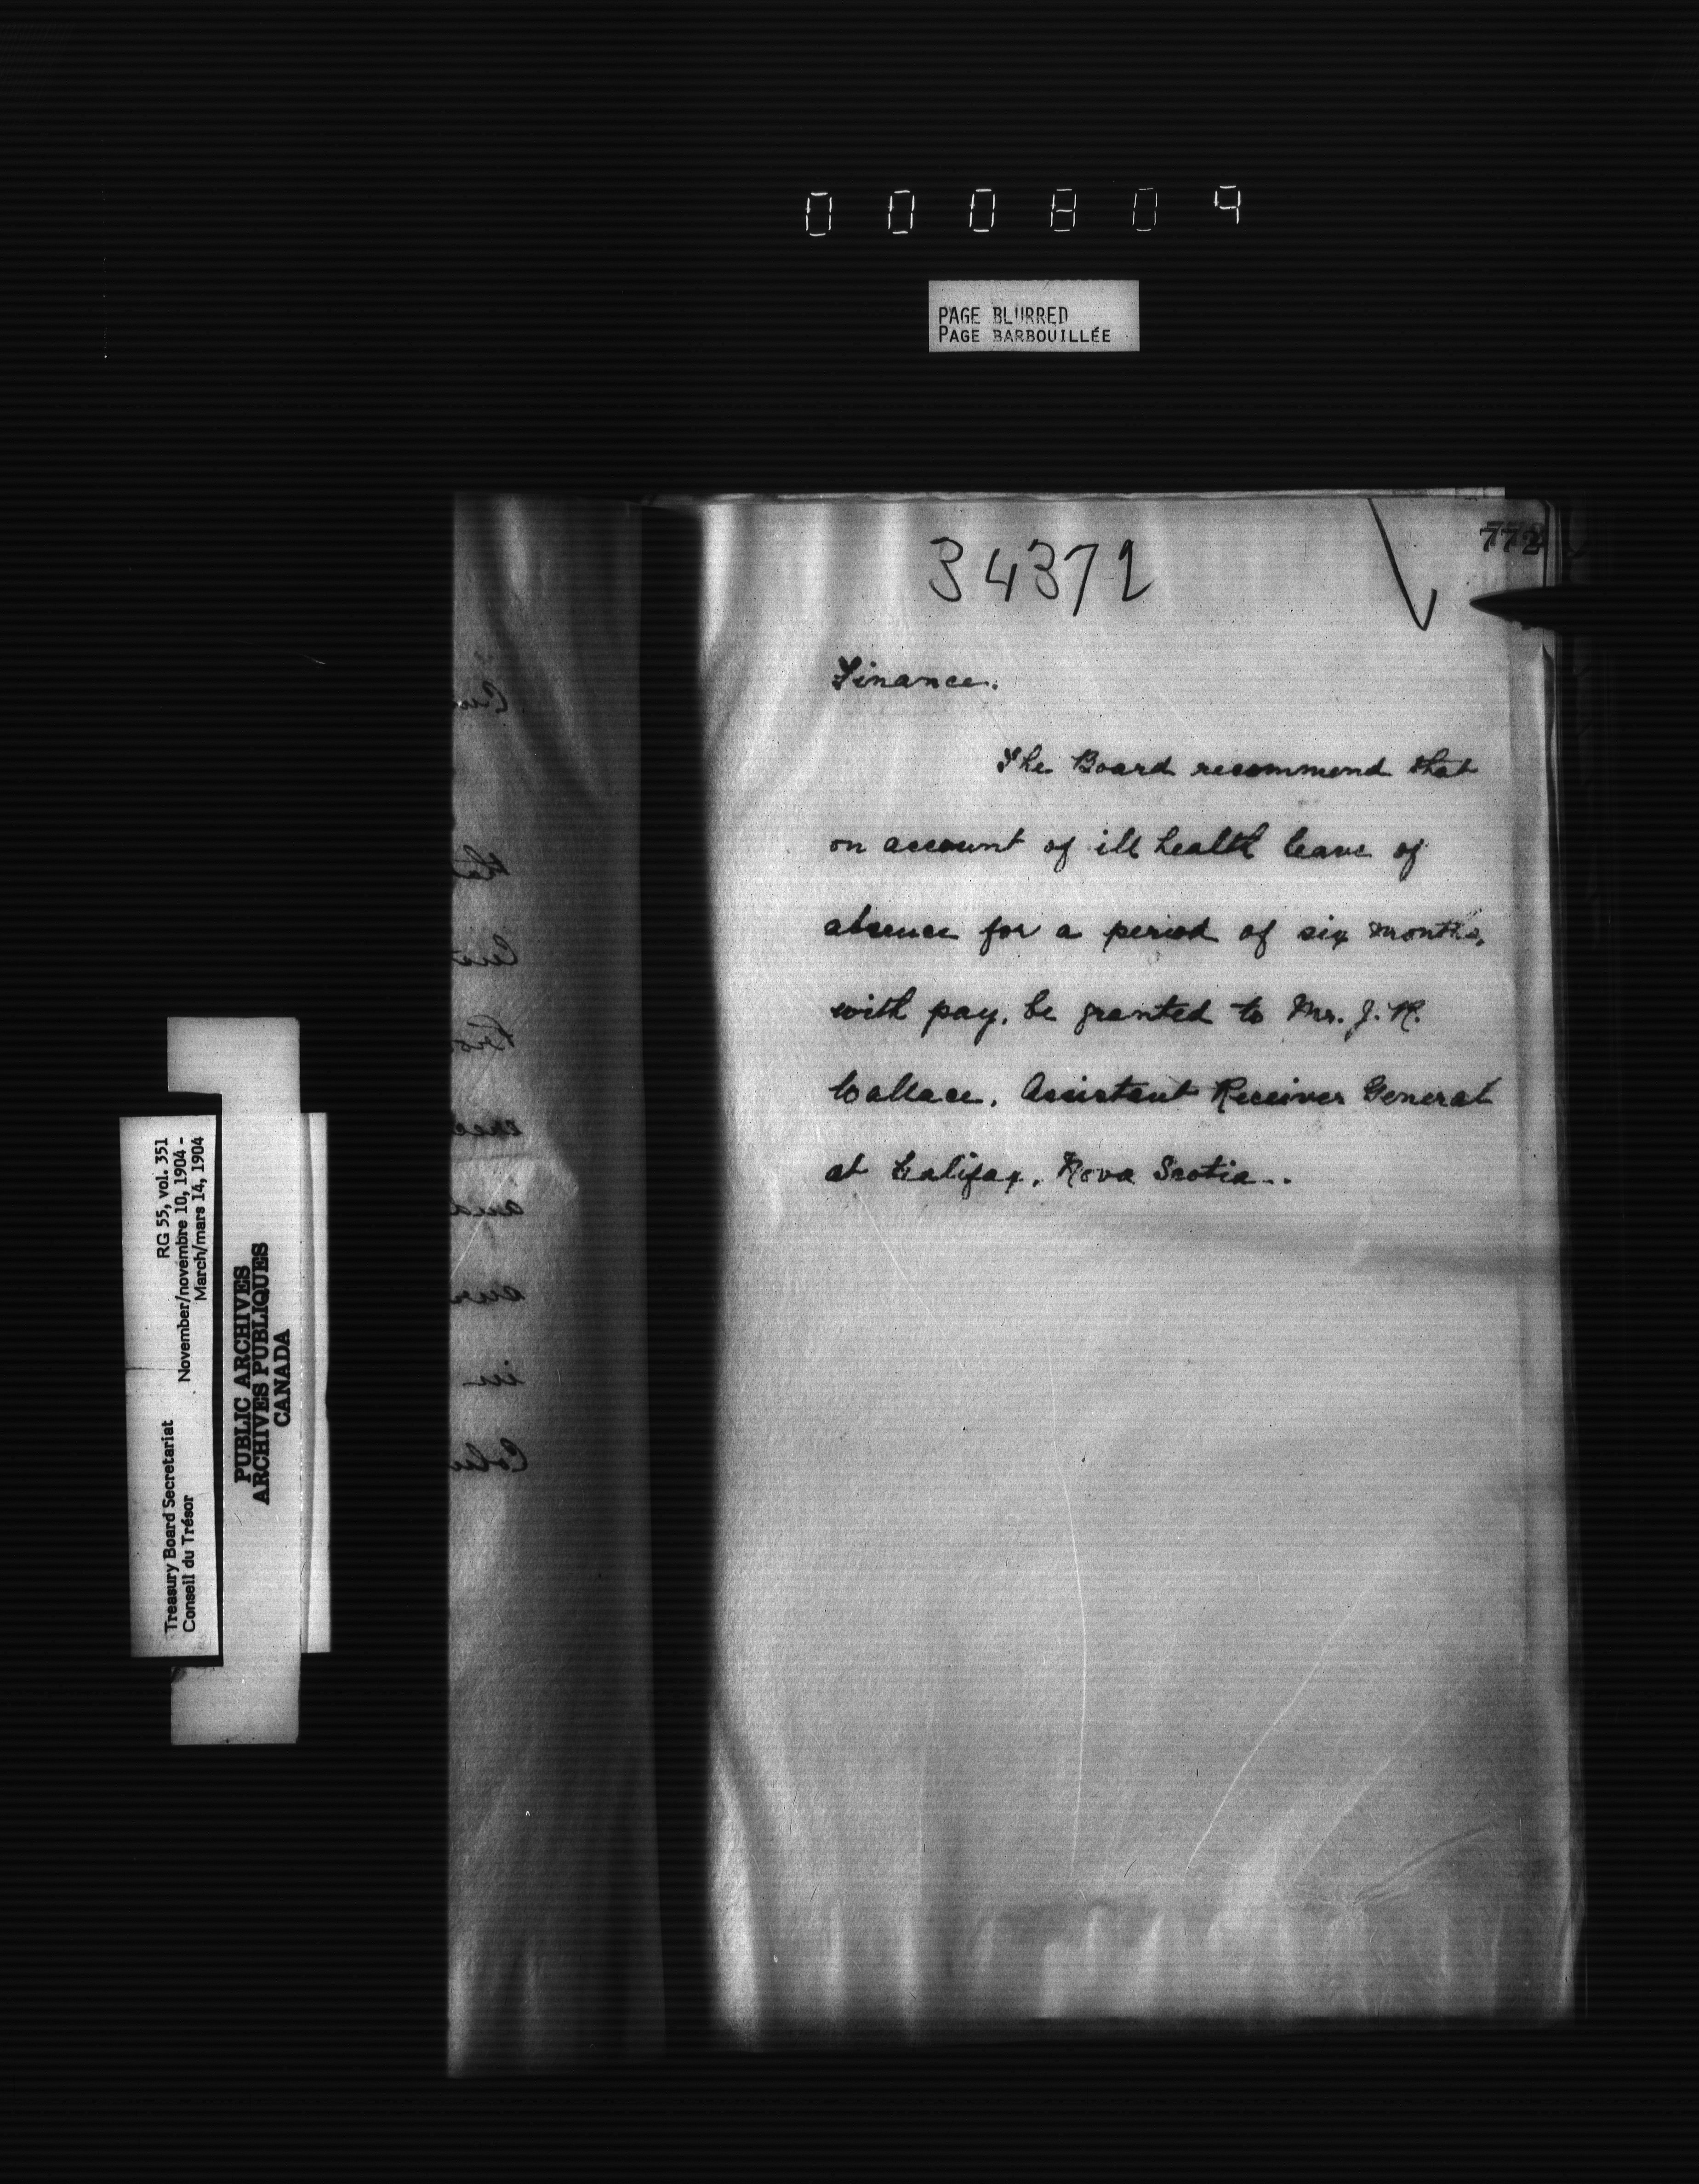 000809
PAGE BLURRED
PAGE BARBOUILLÉE
772
34372
Finance.
The Board recommend that
on account of ill health leave of
absence for a period of six months,
with pay, be granted to Mr. J. R.
Wallace, Assistant Receiver General
at Halifax, Nova Scotia.
Treasury Board Secretariat
Conseil du Trésor
RG 55, vol. 351
November/novembre 10, 1904 -
March/mars 14, 1904
PUBLIC ARCHIVES
ARCHIVES PUBLIQUES
CANADA